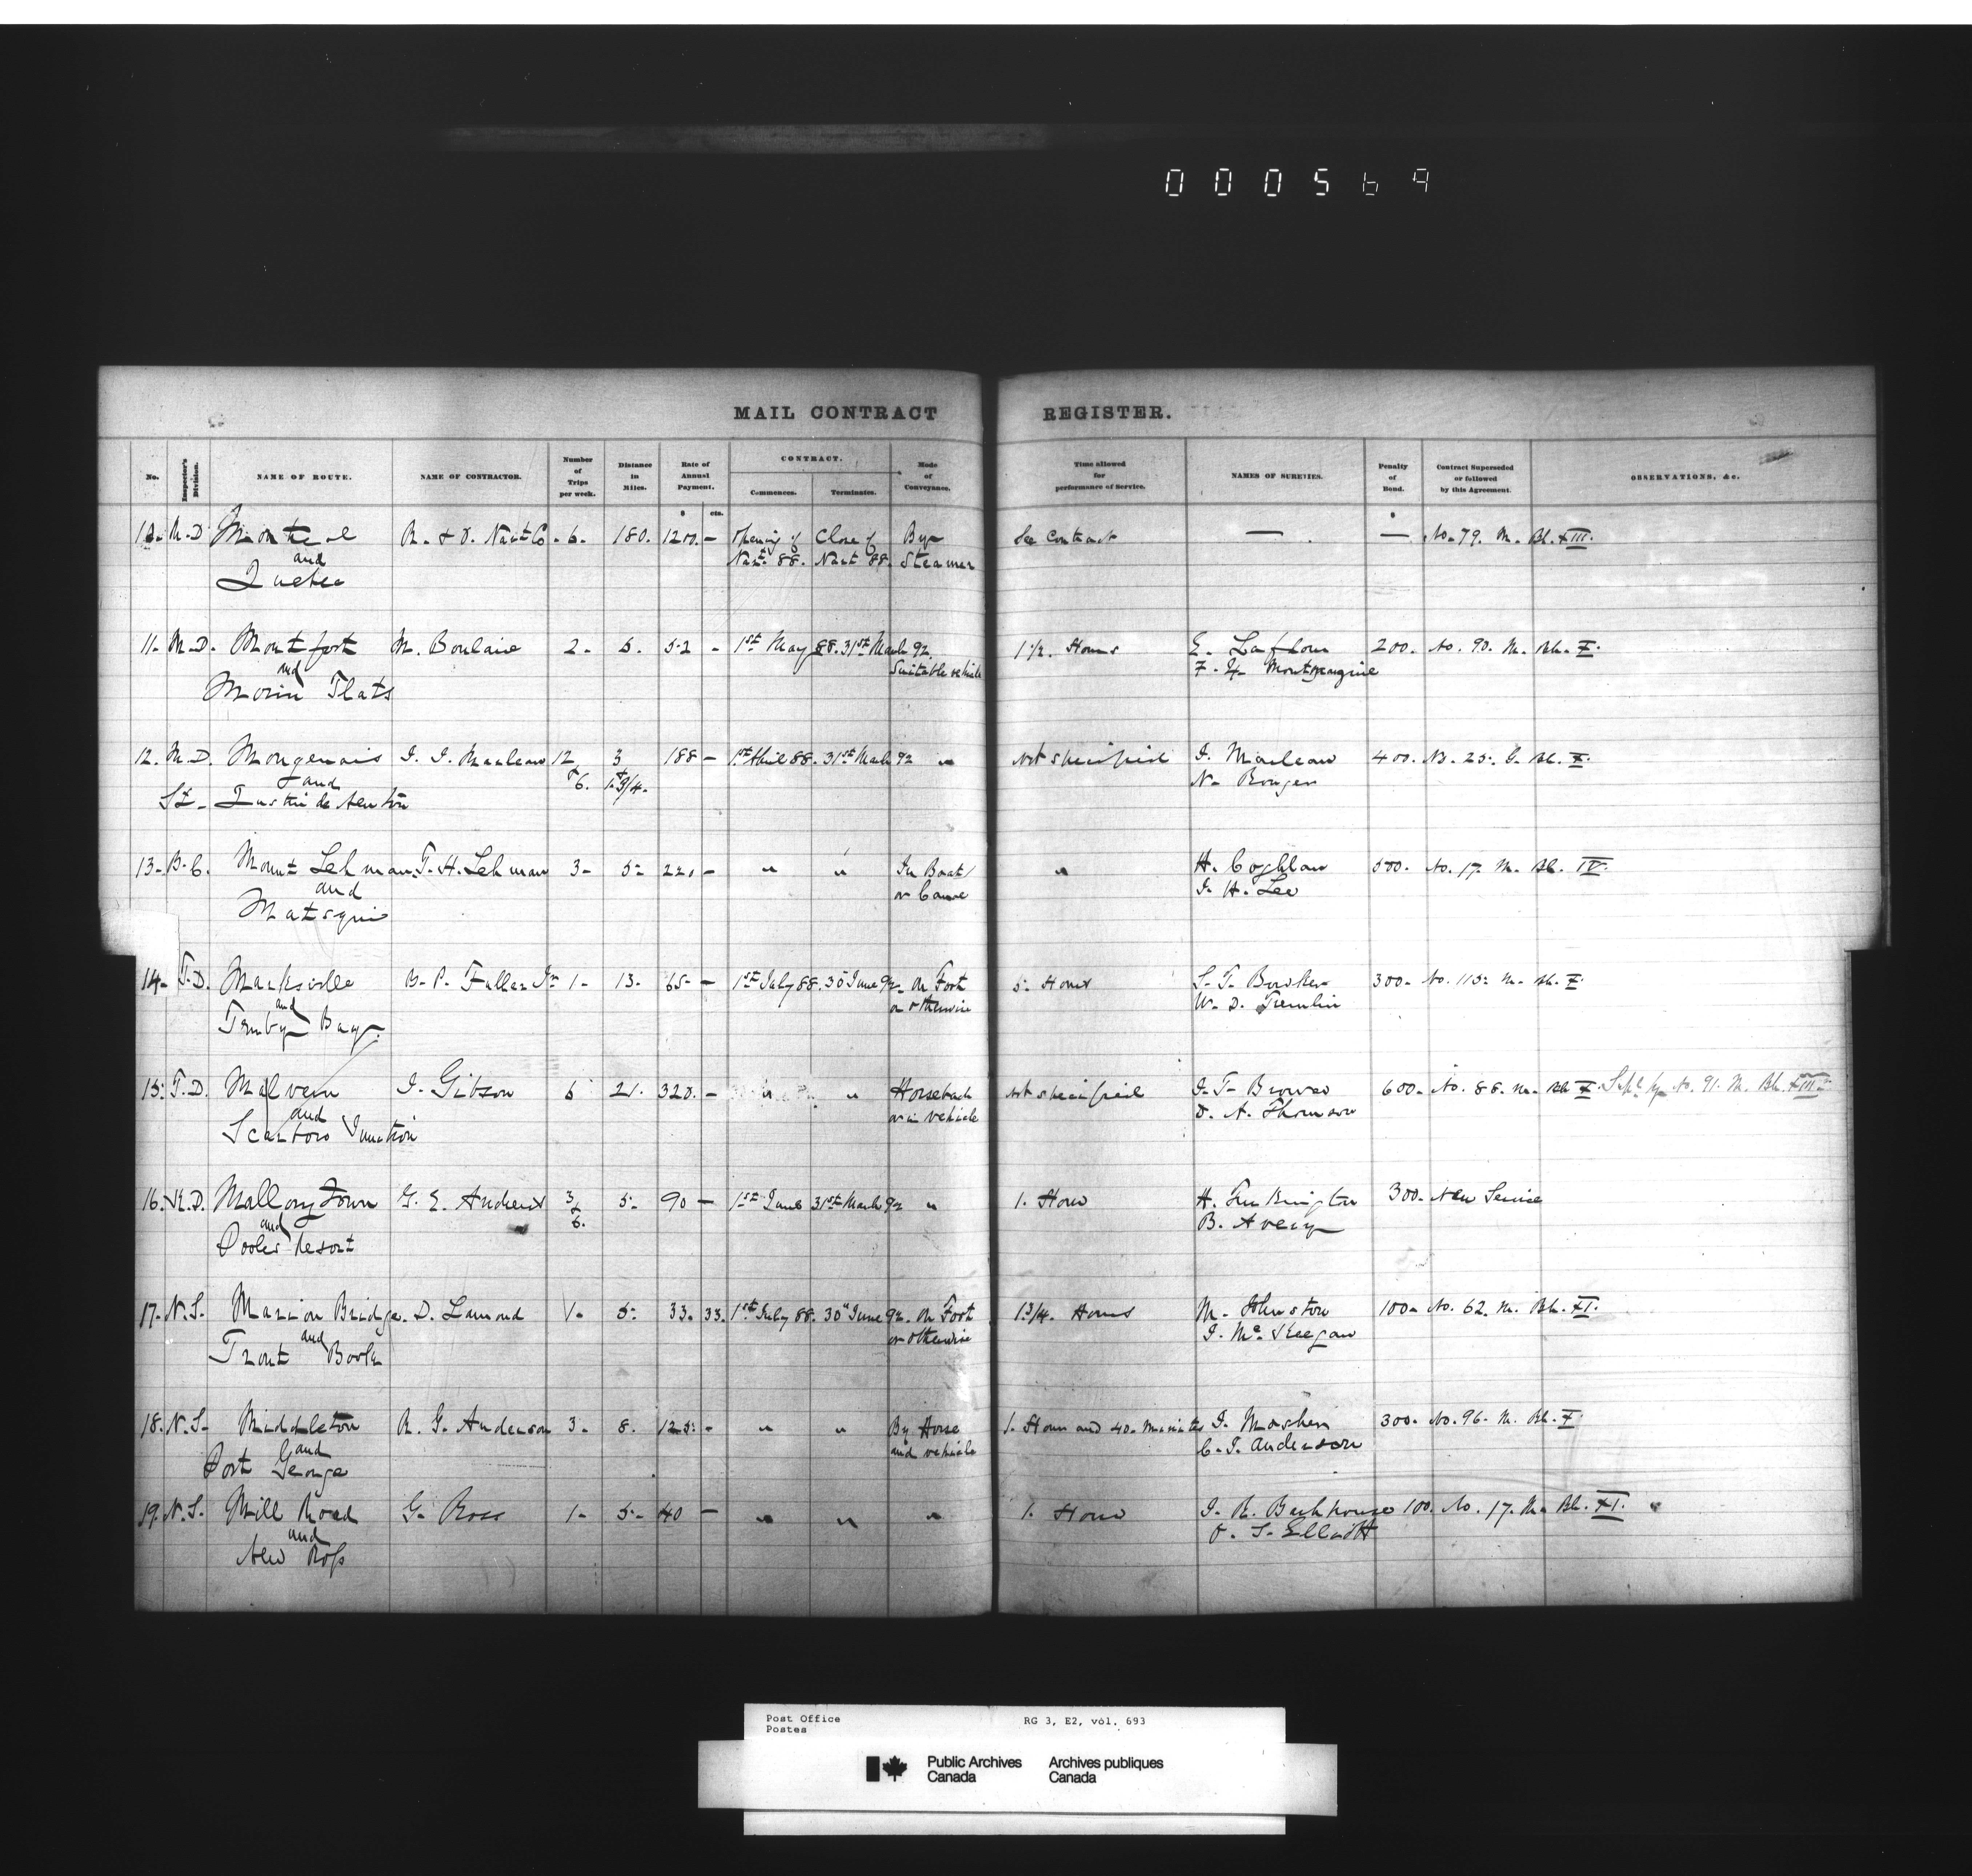 000569
MAIL CONTRACT REGISTER.
No. Inspector's Division. NAME OF ROUTE. NAME OF CONTRACTOR. Number of Trips per week. Distance in Miles. Rate of Annual Payment. CONTRACT. Commences. Terminates. Mode of Conveyance. Time allowed for performance of Service. NAMES OF SURETIES. Penalty of Bond. Contract Superseded or followed by this Agreement. OBSERVATIONS, &c.
$ cts. $
10. M.D Montreal R. & O. Navt Co. 6. 180. 1200. — Opening of Close of By See Contract — — No. 79. M. Bk. XIII.
and Navt. 88. Navt 88. Steamer
Quebec
11. M.D. Montfort M. 2. 5. 52 - 1st May 88. 31st March 92. 1 1/2. Hours E. 200. No. 90. M. Bk. X.
and Suitable vehicle F. X.
Morin Flats
12. M.D. Mongenais J. J. 12 3 188 — 1st April 88. 31st March 92 " Not specified J. 400. No. 25. G. Bk. X.
and & 6. & 1 3/4. N.
St. Justin de Newton
13. B.C. Mount Lehman. T. H. Lehman 3- 5- 220 — " " In Boat " H. Coghlan 500. No. 17. M. Bk. IV.
and or Canoe J. H. Lee
Matsqui
14. T.D. Marksville B. P. Fuller Jr 1- 13. 65- — 1st July 88. 30 June 92. On Foot 5. Hours S. T. Bowker 300. No. 115. M. Bk. X.
and or otherwise W. D. Tremlin
Tenby Bay.
15. T.D. Malvern J. Gibson 6 21. 320. — " " Horseback Not specified J. T. Brown 600. No. 88. M. Bk X. No. 91. M. Bk. XIII.
and or in vehicle D. A. Thomson
Scarboro Junction
16. K.D. Mallory Town G. E. Andress 3 5. 90 — 1st June 31st March 92 " 1. Hour H. 300. New Service
and & 6. B. Avery
Pooles Resort
17. N.S. Marion Bridge. D. Lamond 1. 5. 33. 33. 1st July 88. 30 June 92. On Foot 1 3/4. Hours M. Johnston 100. No. 62. M. Bk. XI.
and or otherwise J. Mc Keegan
Trout Brook
18. N.S. Middleton R. G. Anderson 3. 8. 125. - " " By Horse 1. Hour and 40. Minutes J. Mosher 300. No. 96. M. Bk. X.
and and vehicle C. J. Anderson
Port George
19. N.S. Mill Road G. Ross 1- 5- 40 — " " " 1. Hour J. R. 100. No. 17. M. Bk. XI.
and O. S. Elliott
New Ross
Post Office RG 3, E2, vol. 693
Postes
Public Archives Archives publiques
Canada Canada